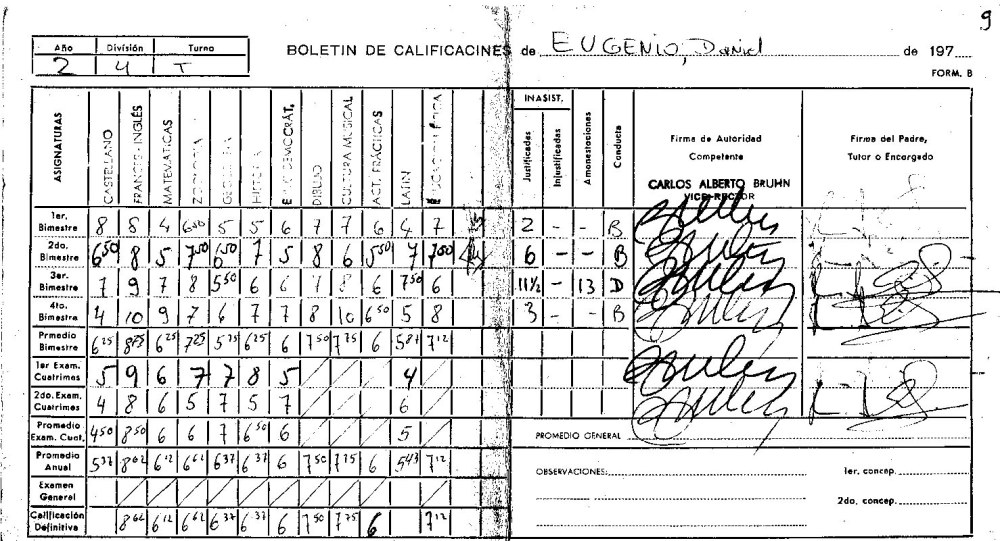 9
Año División Turno
2 4 T
BOLETIN DE CALIFICACINES de EUGENIO, Daniel de 197
FORM. B
ASIGNATURAS CASTELLANO FRANCES - INGLÉS MATEMATICAS DIBUJO CULTURA MUSICAL ACT. PRÁCTICAS LATIN
INASIST.
Justificadas Injustificadas Amonestaciones Conducta
Firma de Autoridad Competente
Firma del Padre, Tutor o Encargado
CARLOS ALBERTO BRUHN
VICE-RECTOR
1er. Bimestre 8 8 4 650 5 5 6 7 7 6 4 7 2 - - B
2do. Bimestre 6 50 8 5 7 50 6 50 7 5 8 6 5 50 7 7 50 6 - - B
3er. Bimestre 7 9 7 8 5 50 6 6 7 8 6 7 50 6 11 1/2 - 13 D
4to. Bimestre 4 10 9 7 6 7 7 8 10 6 50 5 8 3 - - B
Prmedio Bimestre 6 25 6 25 7 25 6 25 6 7 50 7 75 6 5 87 7 12
1er Exam. Cuatrimes 5 9 6 7 7 8 5 4
2do. Exam. Cuatrimes 4 8 6 5 7 5 7 6
Promedio Exam. Cuat. 4 50 8 50 6 6 7 6 50 6 5
PROMEDIO GENERAL
Promedio Anual 5 37 8 62 6 12 6 62 6 37 6 37 6 7 50 7 75 6 5 43 7 12
OBSERVACIONES: 1er. concep.
Examen General
2do. concep.
Calificación Definitiva 8 62 6 12 6 62 6 37 6 37 6 7 50 7 75 6 7 12